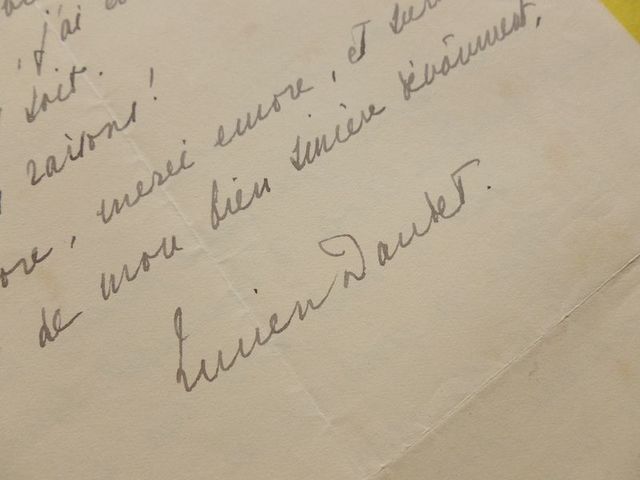 , j'ai
soit.
raisons!
, merci encore, et
de mon bien sincère dévouement,
Lucien Daudet.